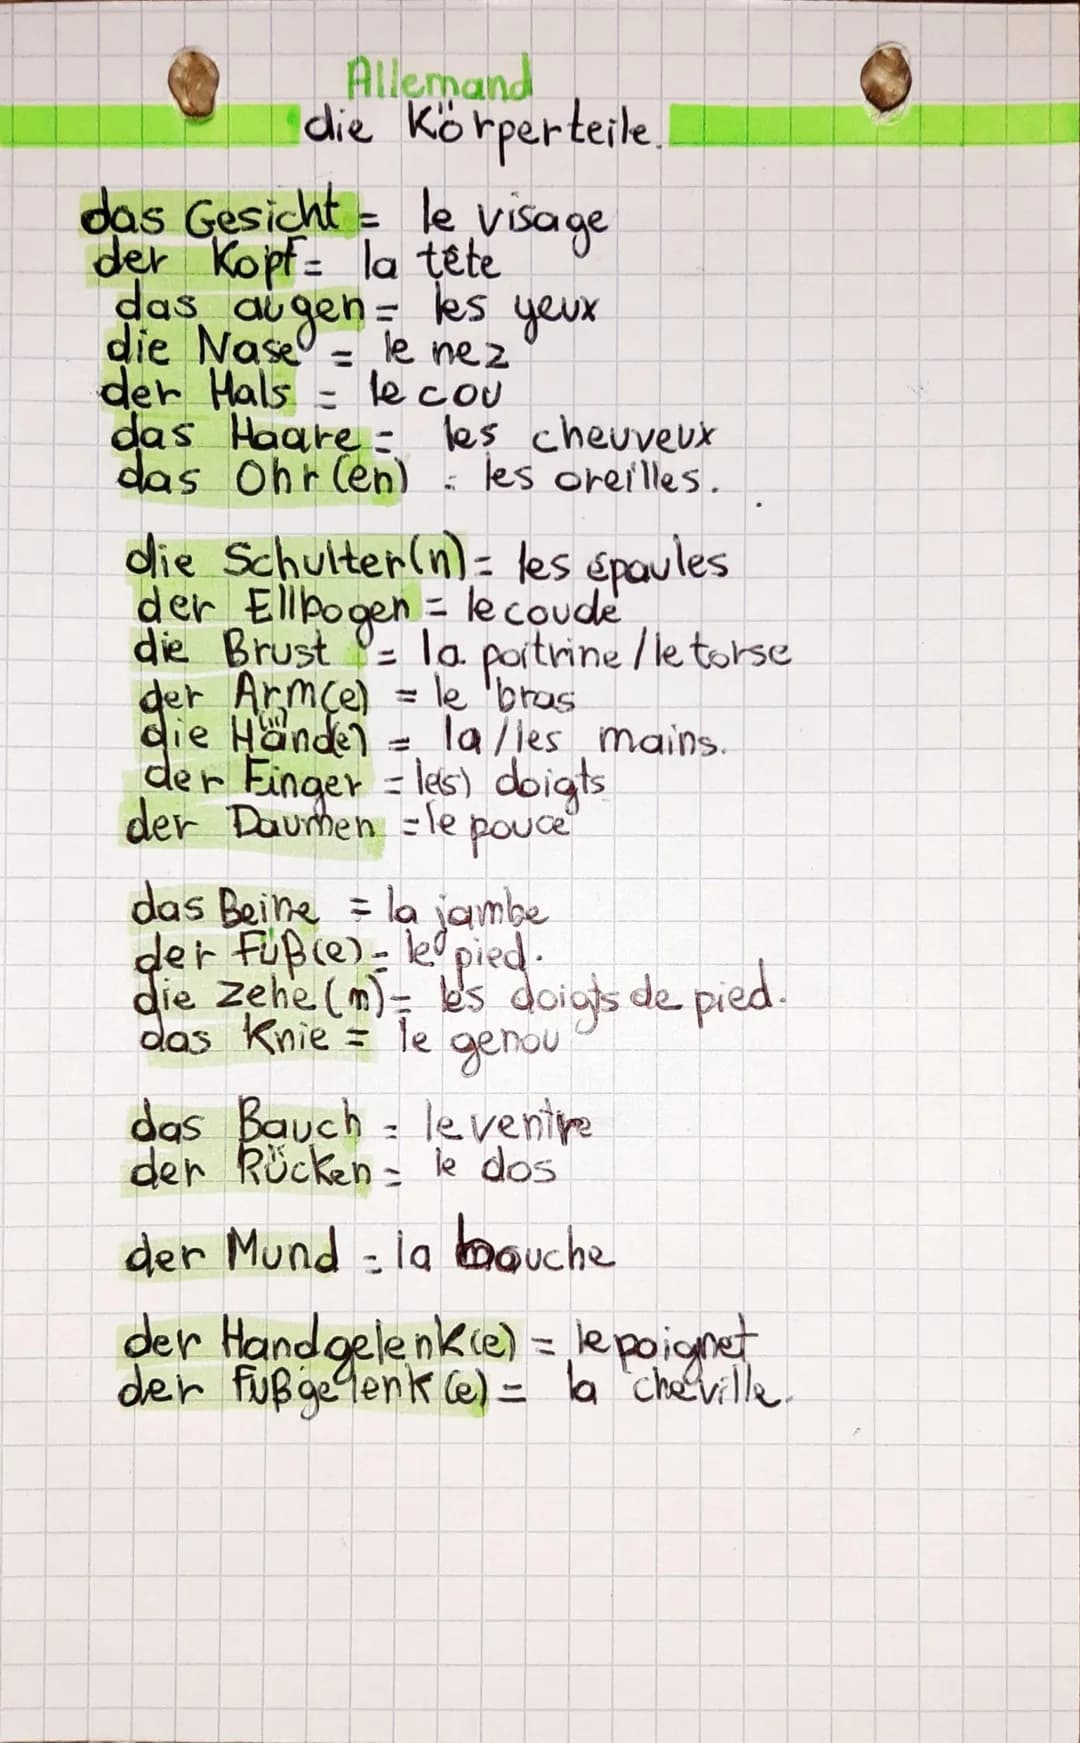 Allemand
die Körperteile.
das Gesicht = le visage
der Kopf = la tête
das augen = les yeux
die Nase = le nez
der Hals = le cou
das Haare = les cheuveux
das Ohr(en) = les oreilles.
die Schulter(n) = les épaules
der Ellbogen = le coude
die Brust = la poitrine / le torse
der Arm(e) = le bras
die Hände) = la / les mains.
der Finger = le(s) doigts
der Daumen = le pouce
das Beine = la jambe
der Füß(e) = le pied.
die Zehe (n) = les doigts de pied.
das Knie = le genou
das Bauch = le ventre
der Rücken = le dos
der Mund = la bouche
der Handgelenk(e) = le poignet
der Fußgelenk (e) = la cheville.